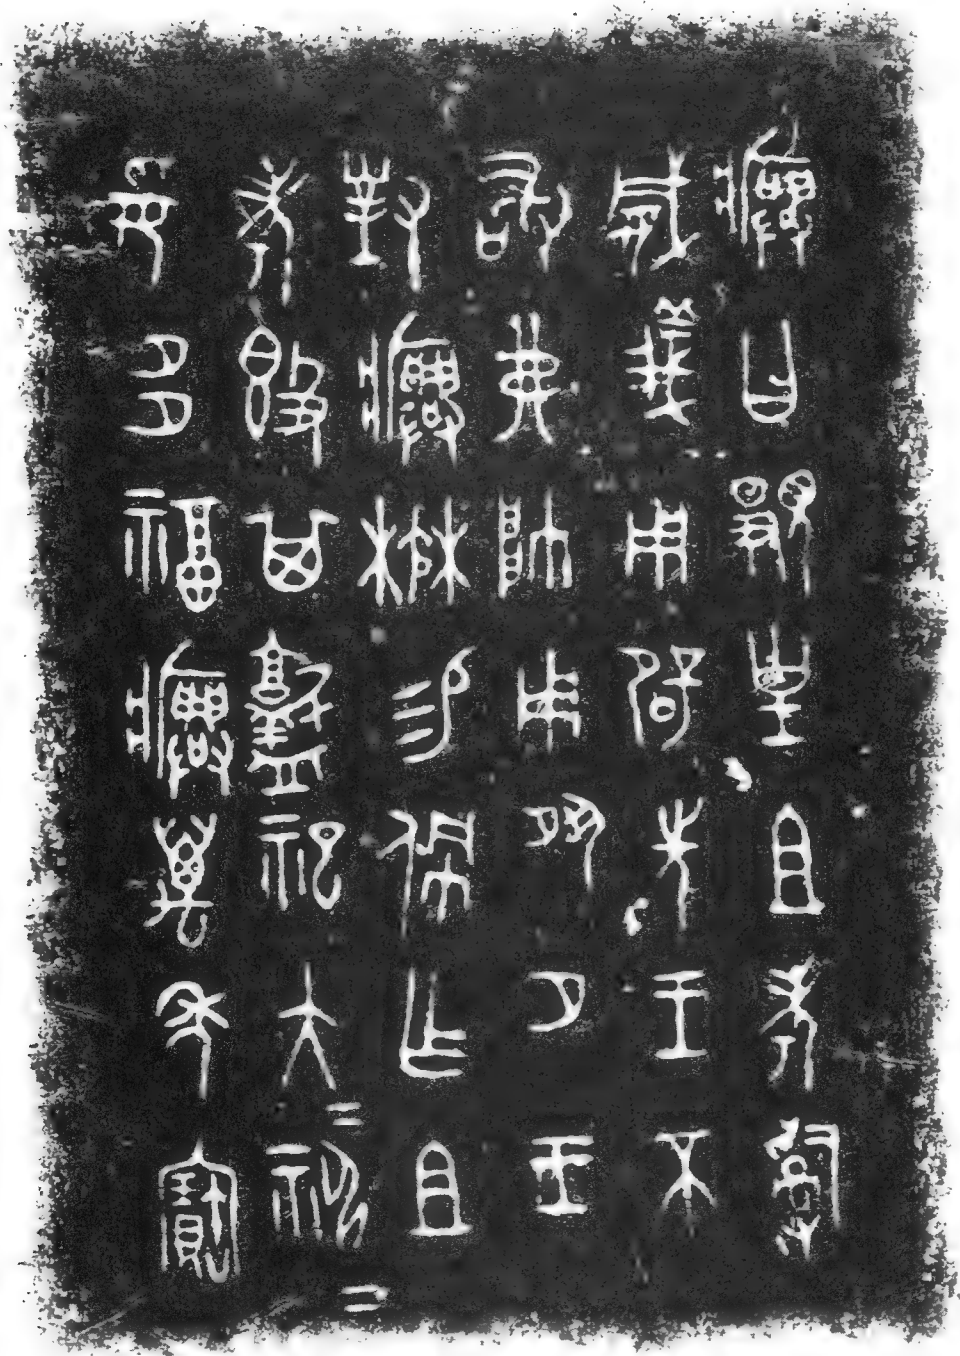 𤼈曰顯皇且考𤔲
威義用辟先王不
敢弗帥用夙夕王
對𤼈楙易佩乍且
考𣪘其𦎫祀大=神=
妥多福𤼈萬年寶